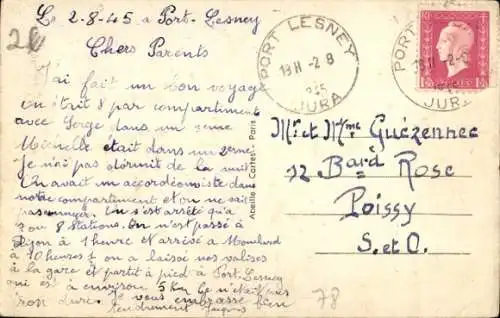 Le 2-8-45 à Port-Lesney
Chers Parents
J'ai fait un bon voyage
on était 8 par compartiment
avec Serge dans un 2eme
Michelle était dans un 2eme
Je n'ai pas dormit de la nuit
On avait un accordéoniste dans
notre compartiment et on ne sait
pas ennuyer. On s'est arrêté qu'a
2 ou 8 stations. On n'est passé à
Dijon à 1 heure et arrivé à Mouchard
à 10 heures et on a laissé nos valises
à la gare et partit à pied à Port-Lesney
qui est à environ 5 Km Ce n'était pas
Je vous embrasse bien
tendrement Jacques
PORT LESNEY
19H -2 8
JURA
PORT
19H -2-8
JURA
Mr et Mme Guézennec
12 Bard Rose
Poissy
S. et O.
Abeille - Cartes - Paris
78